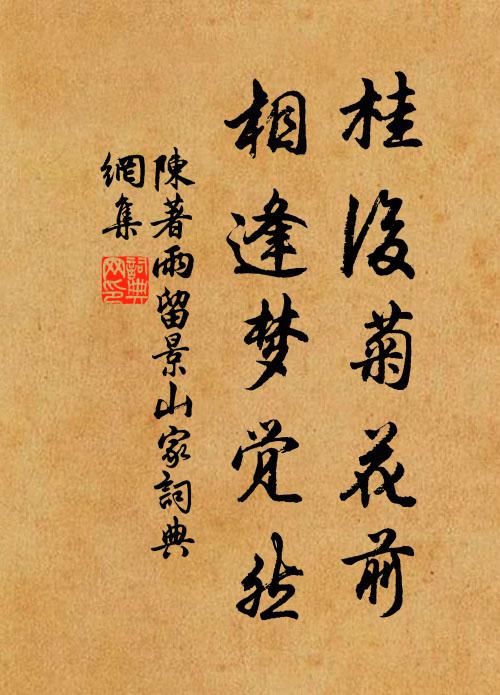 桂後菊花前
相逢梦觉然
陳著雨留景山家詞典
網集
詞典
网印